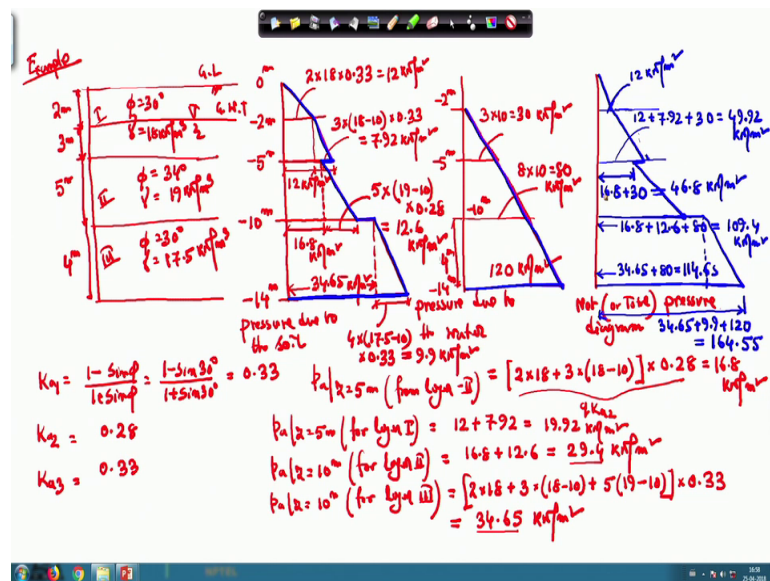 Example
G.L
2m
I
φ=30°
γ=18 kN/m³
G.W.T
3m
5m
II
φ=34°
γ=19 kN/m³
4m
III
φ=30°
γ=17.5 kN/m³
0m
-2m
-5m
-10m
-14m
2x18x0.33=12 kN/m²
3x(18-10)x0.33
=7.92 kN/m²
12 kN/m²
5x(19-10)
x0.28
=12.6
kN/m²
16.8
kN/m²
34.65 kN/m²
4x(17.5-10)
x0.33=9.9 kN/m²
pressure due to
the soil
-2m
-5m
-10m
4m
-14m
3x10=30 kN/m²
8x10=80
kN/m²
120 kN/m²
pressure due to
the water
12 kN/m²
12+7.92+30=49.92
kN/m²
16.8+30=46.8 kN/m²
16.8+12.6+80=109.4
kN/m²
34.65+80=114.65
Net (or Total) pressure
diagram
34.65+9.9+120
=164.55
Ka1 = 1-sinφ/1+sinφ = 1-sin30°/1+sin30° = 0.33
Ka2 = 0.28
Ka3 = 0.33
Pa|z=5m (from layer-II) = [2x18+3x(18-10)]x0.28=16.8
kN/m²
qKa2
Pa|z=5m (for layer I) = 12+7.92 = 19.92 kN/m²
Pa|z=10m (for layer II) = 16.8+12.6 = 29.4 kN/m²
Pa|z=10m (for layer III) = [2x18+3x(18-10)+5(19-10)]x0.33
= 34.65 kN/m²
NPTEL
16:58
25-04-2019